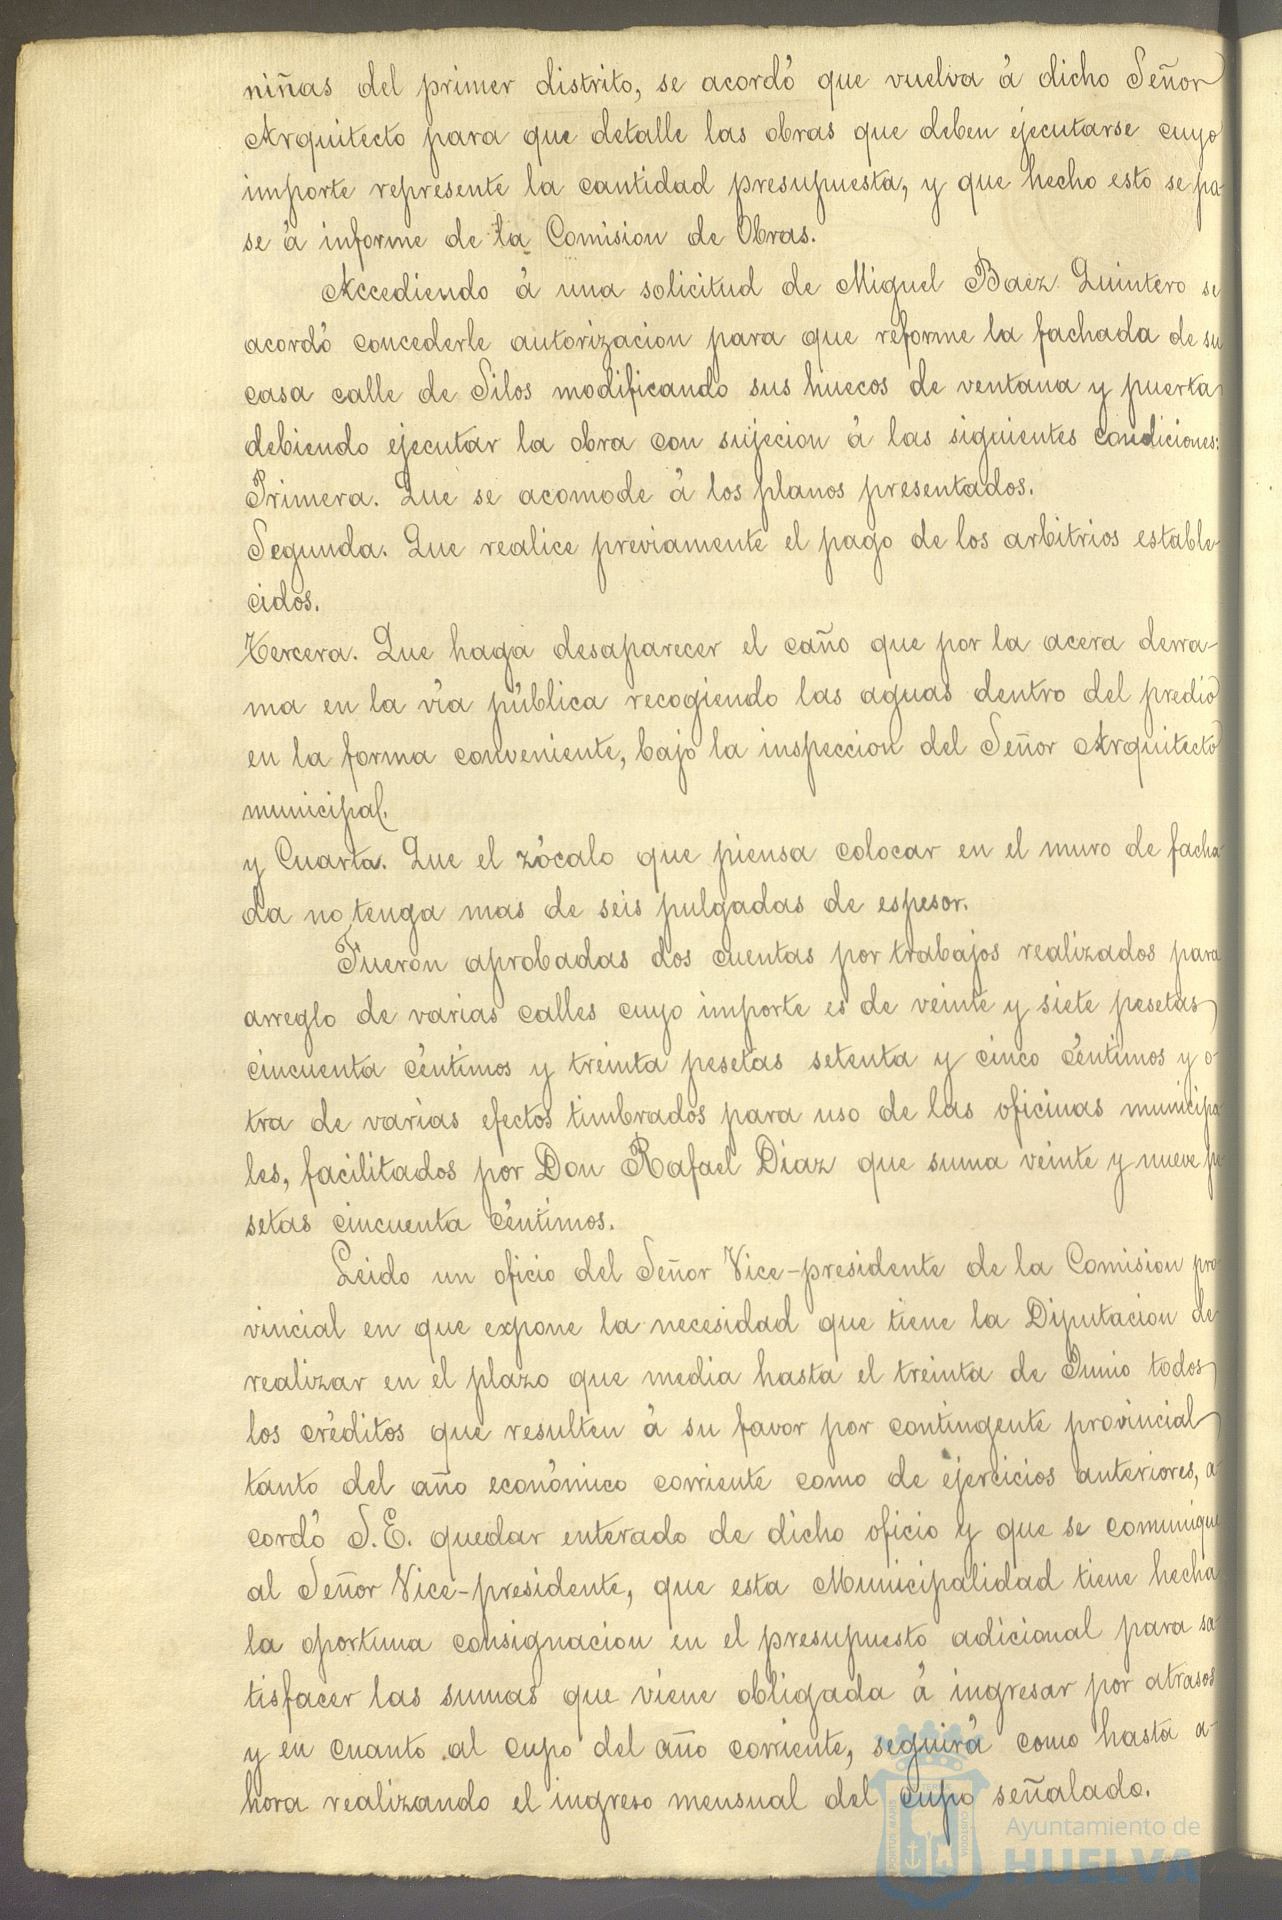 niñas del primer distrito, se acordó que vuelva á dicho Señor
Arquitecto para que detalle las obras que deben ejecutarse cuyo
importe represente la cantidad presupuesta, y que hecho esto se pa-
se á informe de la Comision de Obras.
Accediendo á una solicitud de Miguel Baez Quintero se
acordó concederle autorizacion para que reforme la fachada de su
casa calle de Silos modificando sus huecos de ventana y puerta
debiendo ejecutar la obra con sujecion á las siguientes condiciones:
Primera. Que se acomode á los planos presentados.
Segunda. Que realice previamente el pago de los arbitrios estable-
cidos.
Tercera. Que haga desaparecer el caño que por la acera derra-
ma en la vía pública recogiendo las aguas dentro del predio
en la forma conveniente, bajo la inspeccion del Señor Arquitecto
municipal.
y Cuarta. Que el zócalo que piensa colocar en el muro de facha-
da no tenga mas de seis pulgadas de espesor.
Fueron aprobadas dos cuentas por trabajos realizados para
arreglo de varias calles cuyo importe es de veinte y siete pesetas
cincuenta céntimos y treinta pesetas setenta y cinco céntimos y o-
tra de varias efectos timbrados para uso de las oficinas municipa-
les, facilitados por Don Rafael Diaz que suma veinte y nueve pe-
setas cincuenta céntimos.
Leido un oficio del Señor Vice-presidente de la Comision pro-
vincial en que expone la necesidad que tiene la Diputacion de
realizar en el plazo que media hasta el treinta de Junio todos
los créditos que resulten á su favor por contingente provincial
tanto del año económico corriente como de ejercicios anteriores, a-
cordó S.E. quedar enterado de dicho oficio y que se comunique
al Señor Vice-presidente, que esta Municipalidad tiene hecha
la oportuna consignacion en el presupuesto adicional para sa-
tisfacer las sumas que viene obligada á ingresar por atrasos
y en cuanto al cupo del año corriente, seguirá como hasta a-
hora realizando el ingreso mensual del cupo señalado.
Ayuntamiento de
HUELVA